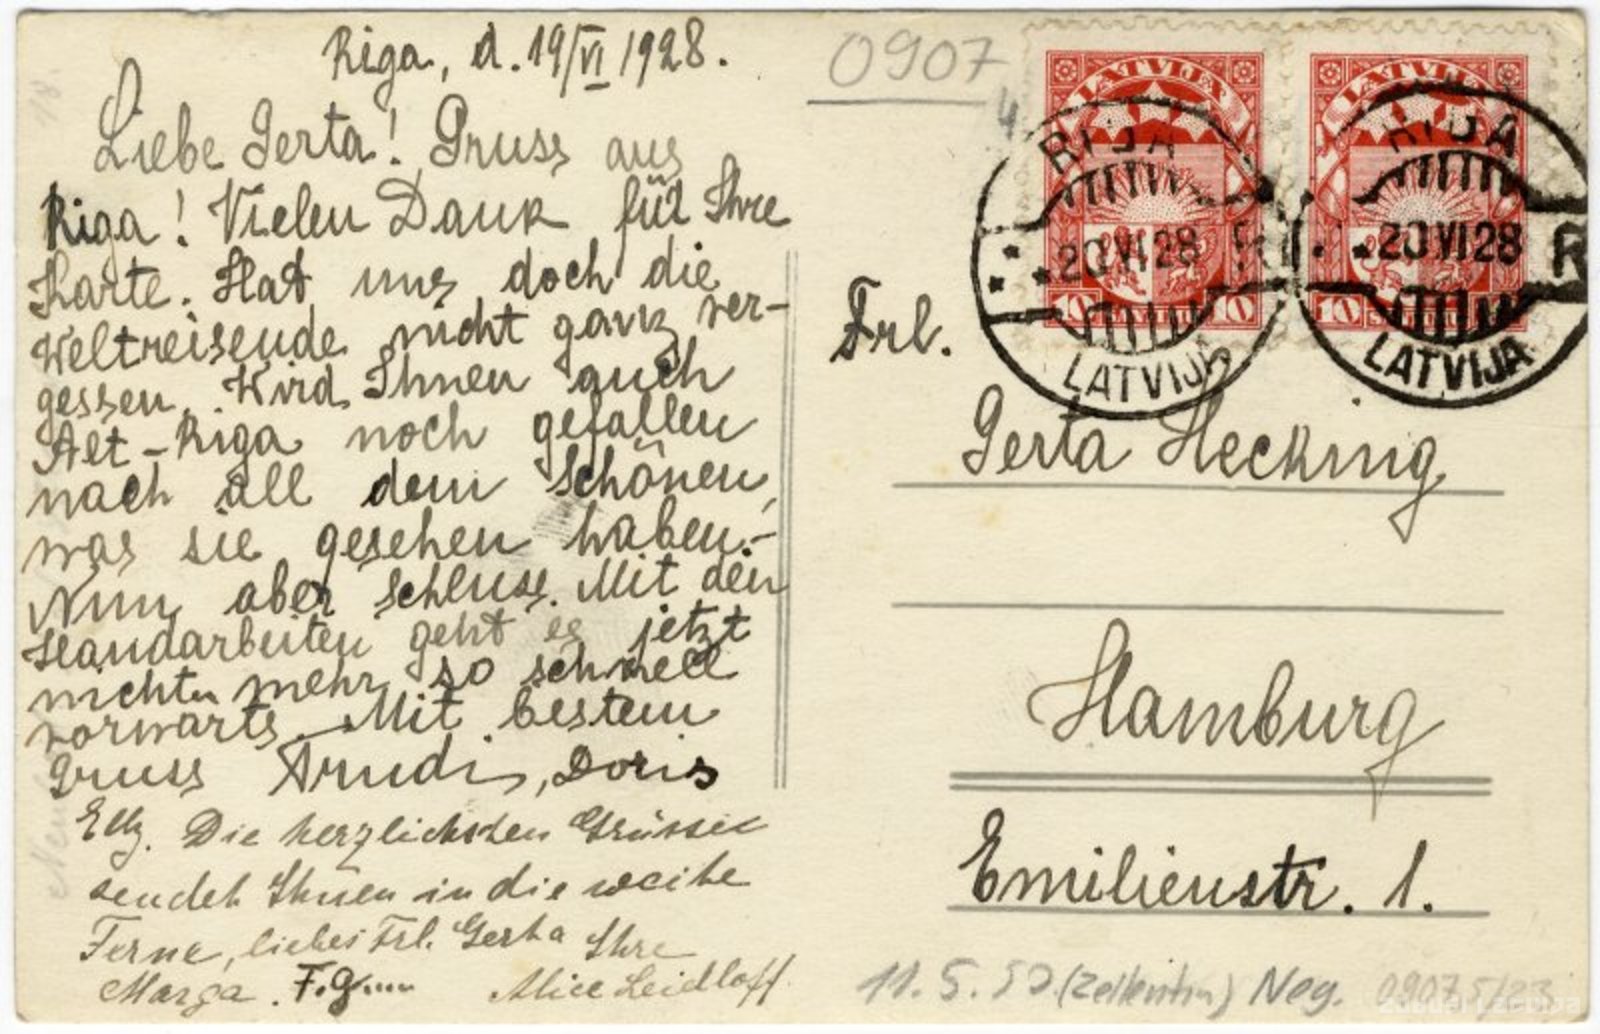 Riga, d. 19/VI 1928.
Liebe Gerta! Gruss aus
Riga! Vielen Dank für Ihre
Karte. Hat uns doch die
Weltreisende nicht ganz ver-
gessen. Wird Ihnen auch
Alt-Riga noch gefallen
nach all dem schönen,
was sie gesehen haben.-
Nun aber schluss. Mit den
Handarbeiten geht es jetzt
nicht mehr so schnell
vorwärts. Mit bestem
Gruss Trudi, Doris
Elly. Die herzlichsten Grüsse
sendet Ihnen in die weite
Ferne, liebes Frl. Gerta Ihre
Marga. F.g. Alice Leidloff.
0907
4
LATVIJA
LATVIJA
RIGA
20 VI 28
LATVIJA
RIGA
*20 VI 28 R
LATVIJA
10 SANTIMU 10
10 SANTIMU
Frl.
Gerta Hecking
Hamburg
Emilienstr. 1.
11.5.57. Neg. 0907 5/23
zudusilatvija